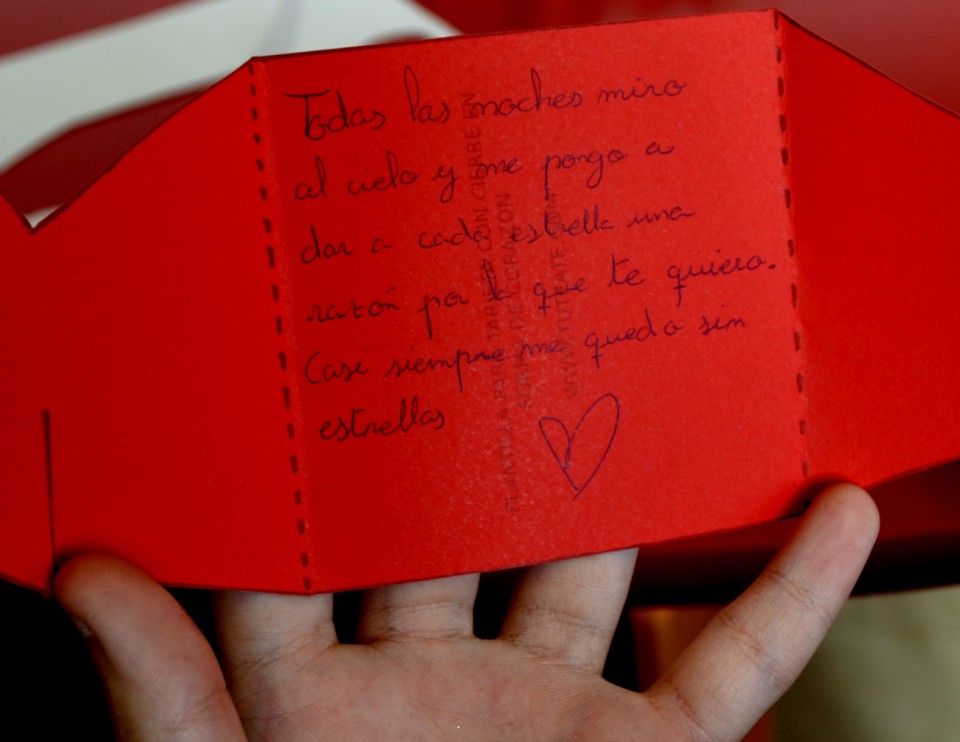 Todas las noches miro
al cielo y me pongo a
dar a cada estrella una
razón por la que te quiero.
Case siempre me quedo sin
estrellas
PLANTILLA PARA TARJETA CON CIERRE EN
FORMA DE CORAZÓN